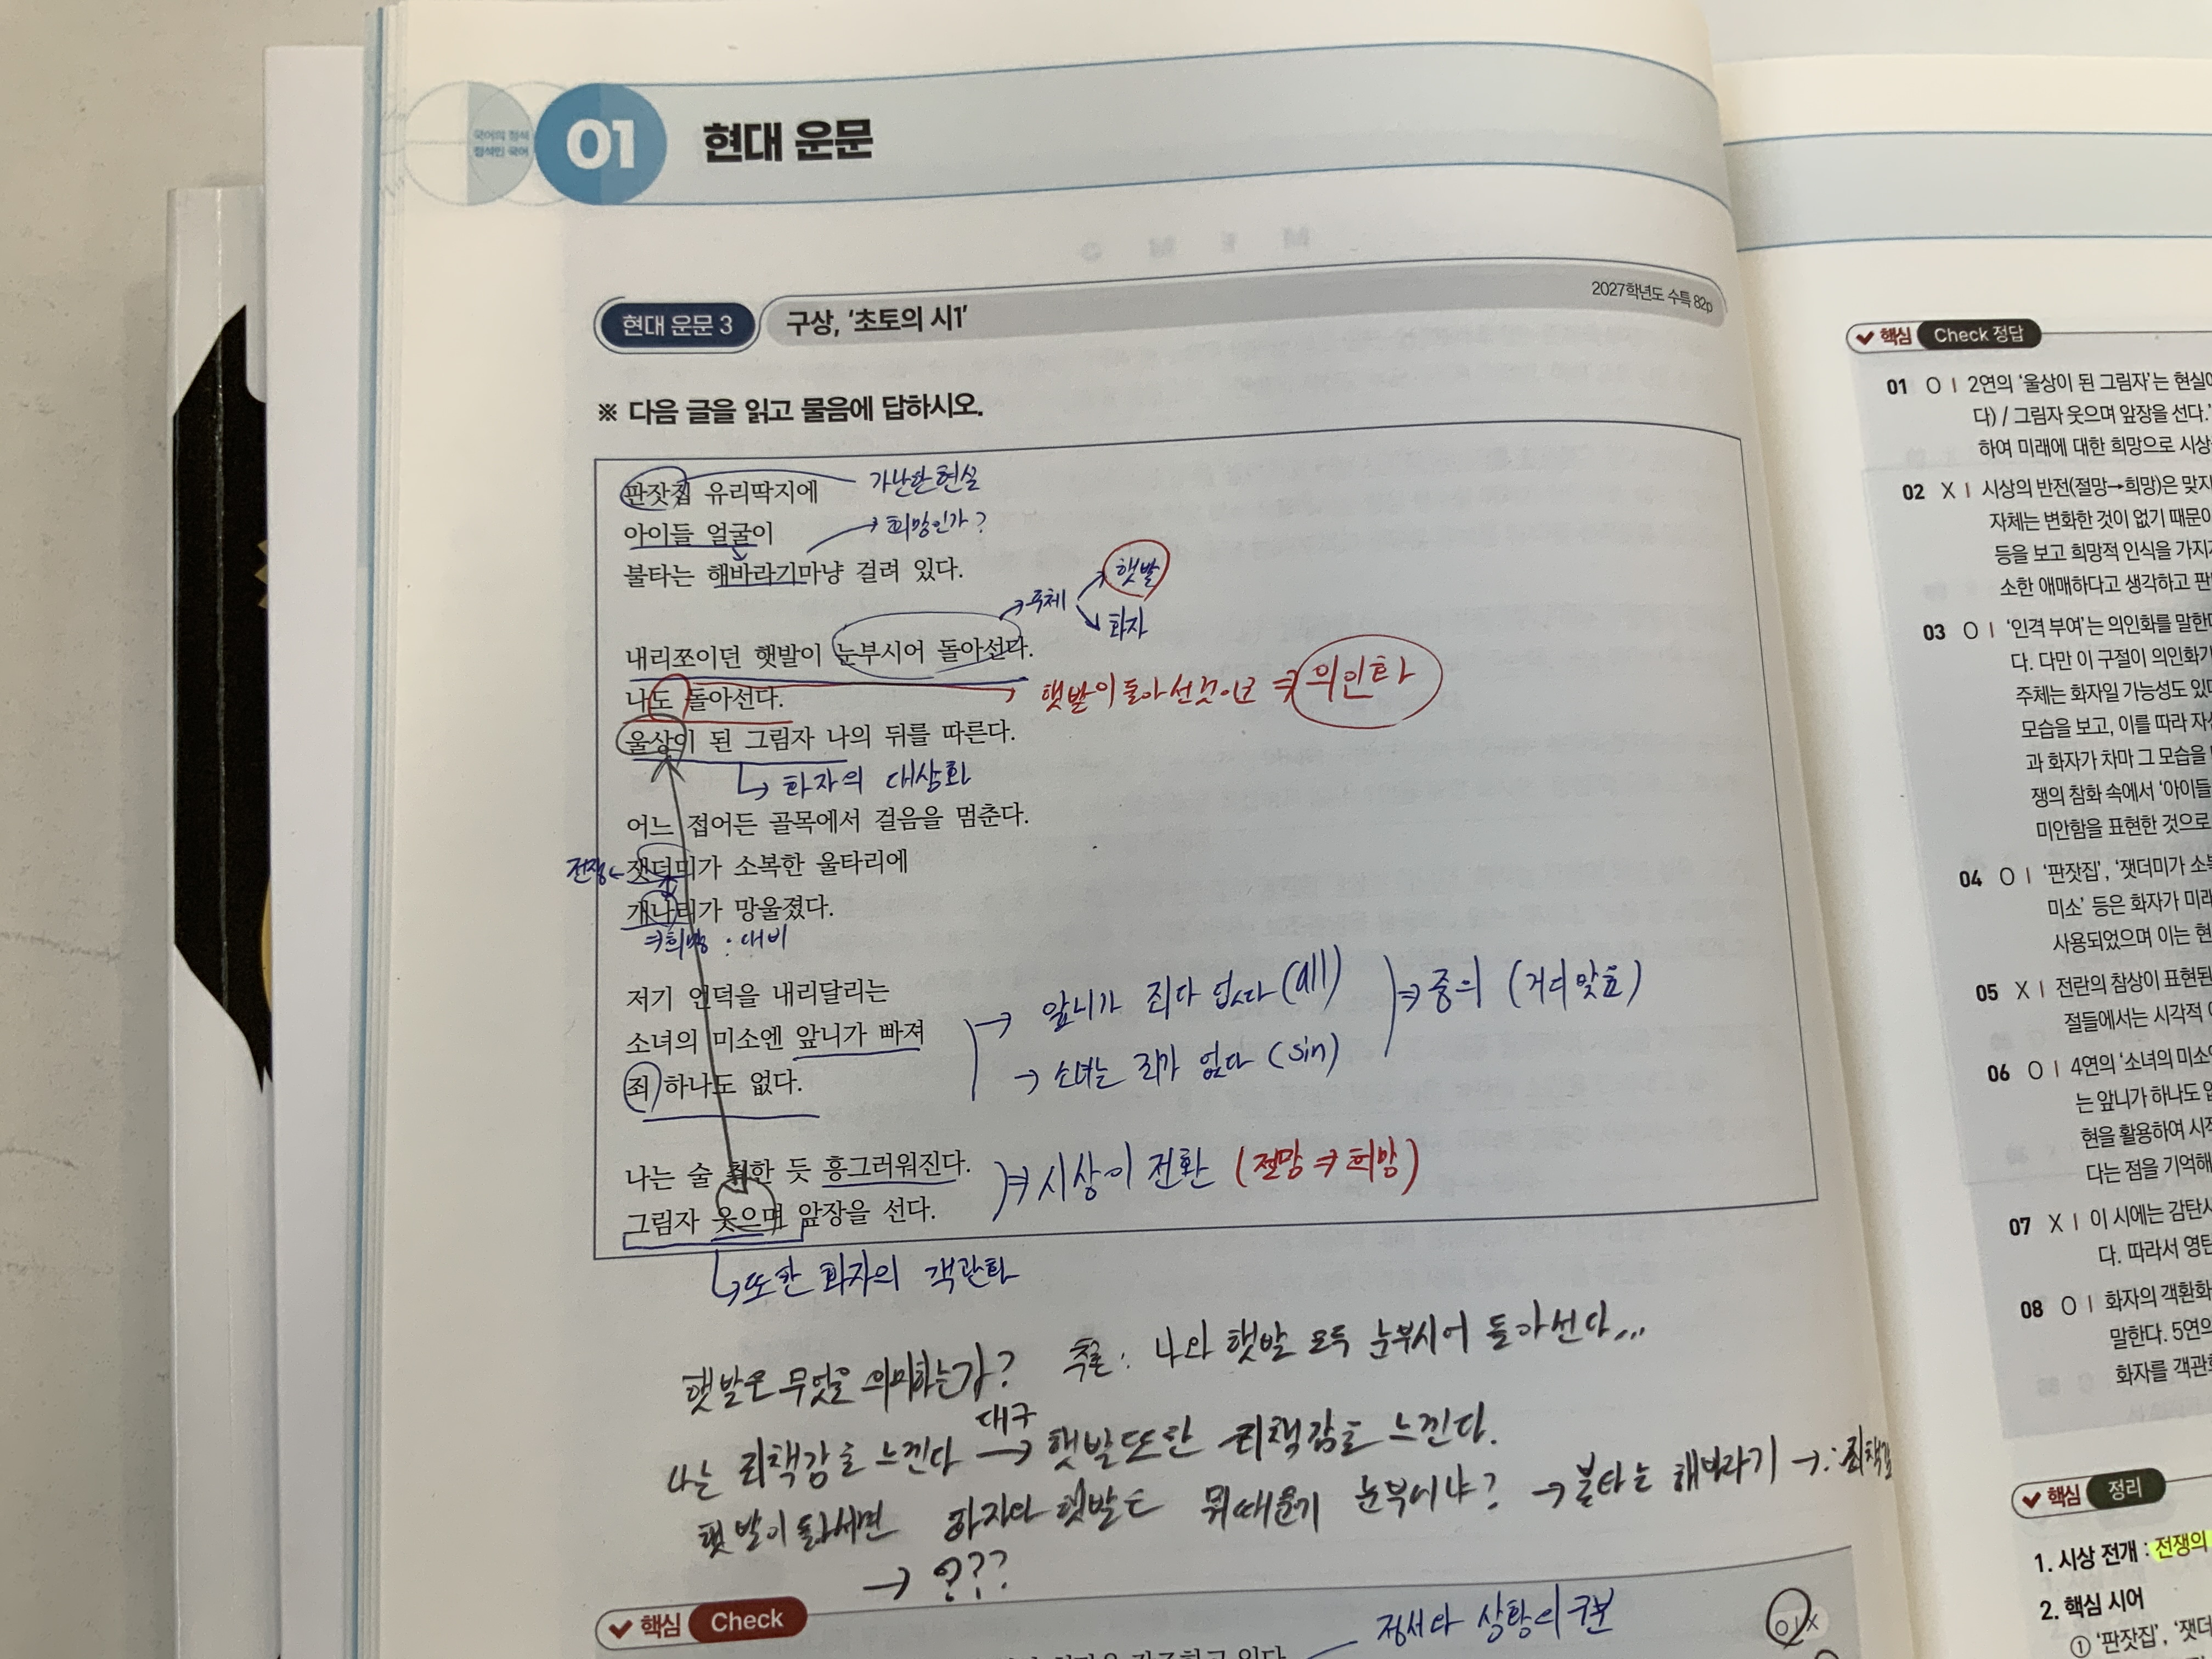 국어의 정석
정석민 국어
01 현대 운문
현대 운문 3 구상, '초토의 시1' 2027학년도 수특 82p
※ 다음 글을 읽고 물음에 답하시오.
판잣집 유리딱지에 가난한 현실
아이들 얼굴이 → 희망인가?
불타는 해바라기마냥 걸려 있다.
햇발
→ 주체
화자
내리쪼이던 햇발이 눈부시어 돌아선다.
나도 돌아선다. → 햇발이 돌아선것이므로 ⇒ 의인화
울상이 된 그림자 나의 뒤를 따른다.
↳ 화자의 대상화
어느 접어든 골목에서 걸음을 멈춘다.
전쟁← 잿더미가 소복한 울타리에
개나리가 망울졌다.
⇒희망 : 대비
저기 언덕을 내리달리는
소녀의 미소엔 앞니가 빠져 → 앞니가 죄다 없다 (all) ⇒ 중의 (거의 맞음)
죄 하나도 없다. → 소녀는 죄가 없다 (sin)
나는 술 취한 듯 흥그러워진다. ⇒ 시상이 전환 (절망 ⇒ 희망)
그림자 웃으며 앞장을 선다.
↳또한 화자의 객관화
햇발은 무엇을 의미하는가? 추론: 나와 햇발 모두 눈부시어 돌아선다...
대구
나는 죄책감을 느낀다 → 햇발 또한 죄책감을 느낀다.
햇발이 돌아서면 화자와 햇발은 뭐 때문에 눈부시냐? → 불타는 해바라기 →: 죄책감
→ ???
핵심 Check
정서와 상황의 구분
O X
핵심 Check 정답
01 O | 2연의 '울상이 된 그림자'는 현실에
다) / 그림자 웃으며 앞장을 선다.'
하여 미래에 대한 희망으로 시상
02 X | 시상의 반전(절망→희망)은 맞지
자체는 변화한 것이 없기 때문이
등을 보고 희망적 인식을 가지
소한 애매하다고 생각하고 판
03 O | '인격 부여'는 의인화를 말한
다. 다만 이 구절이 의인화가
주체는 화자일 가능성도 있
모습을 보고, 이를 따라 자신
과 화자가 차마 그 모습을
쟁의 참화 속에서 '아이들
미안함을 표현한 것으로
04 O | '판잣집', '잿더미가 소복
미소' 등은 화자가 미래
사용되었으며 이는 현
05 X | 전란의 참상이 표현된
절들에서는 시각적
06 O | 4연의 '소녀의 미소엔
는 앞니가 하나도 없
현을 활용하여 시적
다는 점을 기억해
07 X | 이 시에는 감탄사
다. 따라서 영탄
08 O | 화자의 객관화
말한다. 5연의
화자를 객관화
핵심 정리
1. 시상 전개 : 전쟁의
2. 핵심 시어
① '판잣집', '잿더